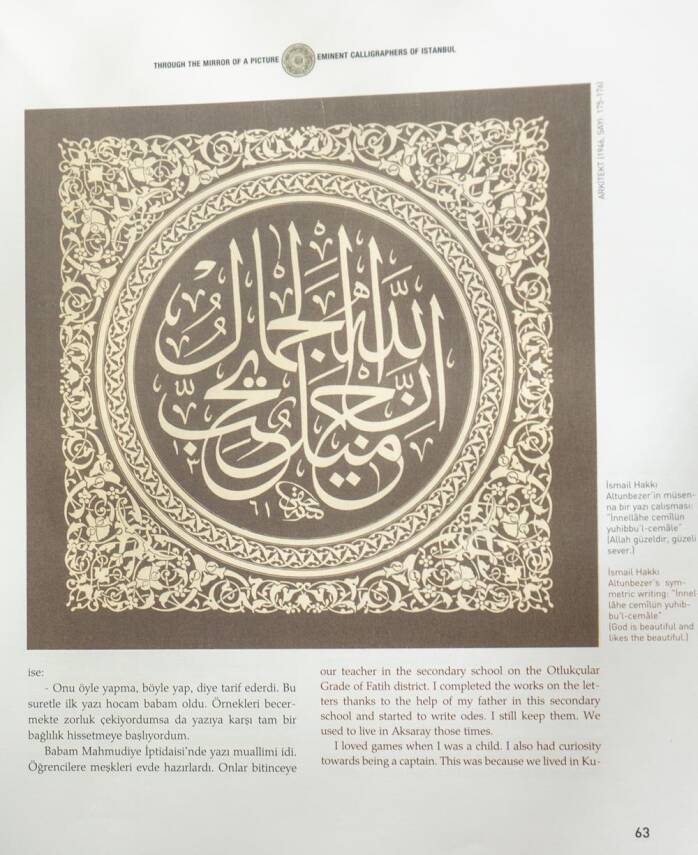 THROUGH THE MIRROR OF A PICTURE EMINENT CALLIGRAPHERS OF ISTANBUL
ARKİTEKT (1946, SAYI: 175-176)
ان الله جميل يحب الجمال
İsmail Hakkı
Altunbezer'in müsen-
na bir yazı çalışması:
"İnnellâhe cemîlün
yuhibbu'l-cemâle"
(Allah güzeldir, güzeli
sever.)
İsmail Hakkı
Altunbezer's sym-
metric writing: "İnnel-
lâhe cemîlün yuhib-
bu'l-cemâle"
(God is beautiful and
likes the beautiful.)
ise:
- Onu öyle yapma, böyle yap, diye tarif ederdi. Bu
suretle ilk yazı hocam babam oldu. Örnekleri becer-
mekte zorluk çekiyordumsa da yazıya karşı tam bir
bağlılık hissetmeye başlıyordum.
Babam Mahmudiye İptidaisi'nde yazı muallimi idi.
Öğrencilere meşkleri evde hazırlardı. Onlar bitinceye
our teacher in the secondary school on the Otlukçular
Grade of Fatih district. I completed the works on the let-
ters thanks to the help of my father in this secondary
school and started to write odes. I still keep them. We
used to live in Aksaray those times.
I loved games when I was a child. I also had curiosity
towards being a captain. This was because we lived in Ku-
63